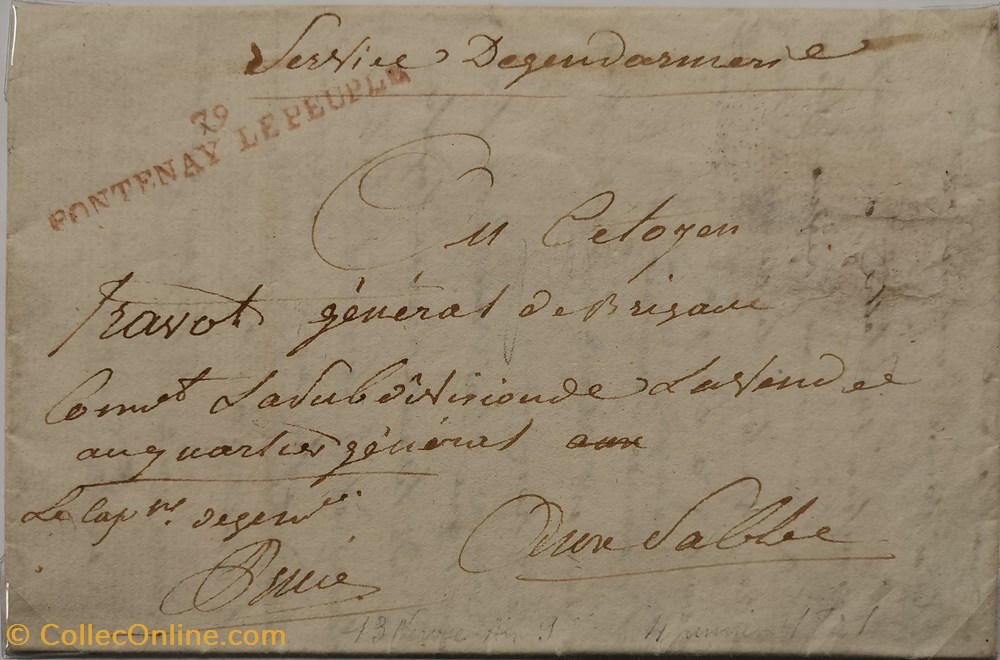 Service Degendarmerie
79
FONTENAY LE PEUPLE
Au Citoyen
Travot général de Brigade
Comdt Lasubdivision de Lavendée
auquartier général aux
Le Capne degenrie
Aux Sable
13 Nivose An 9
© CollecOnline.com